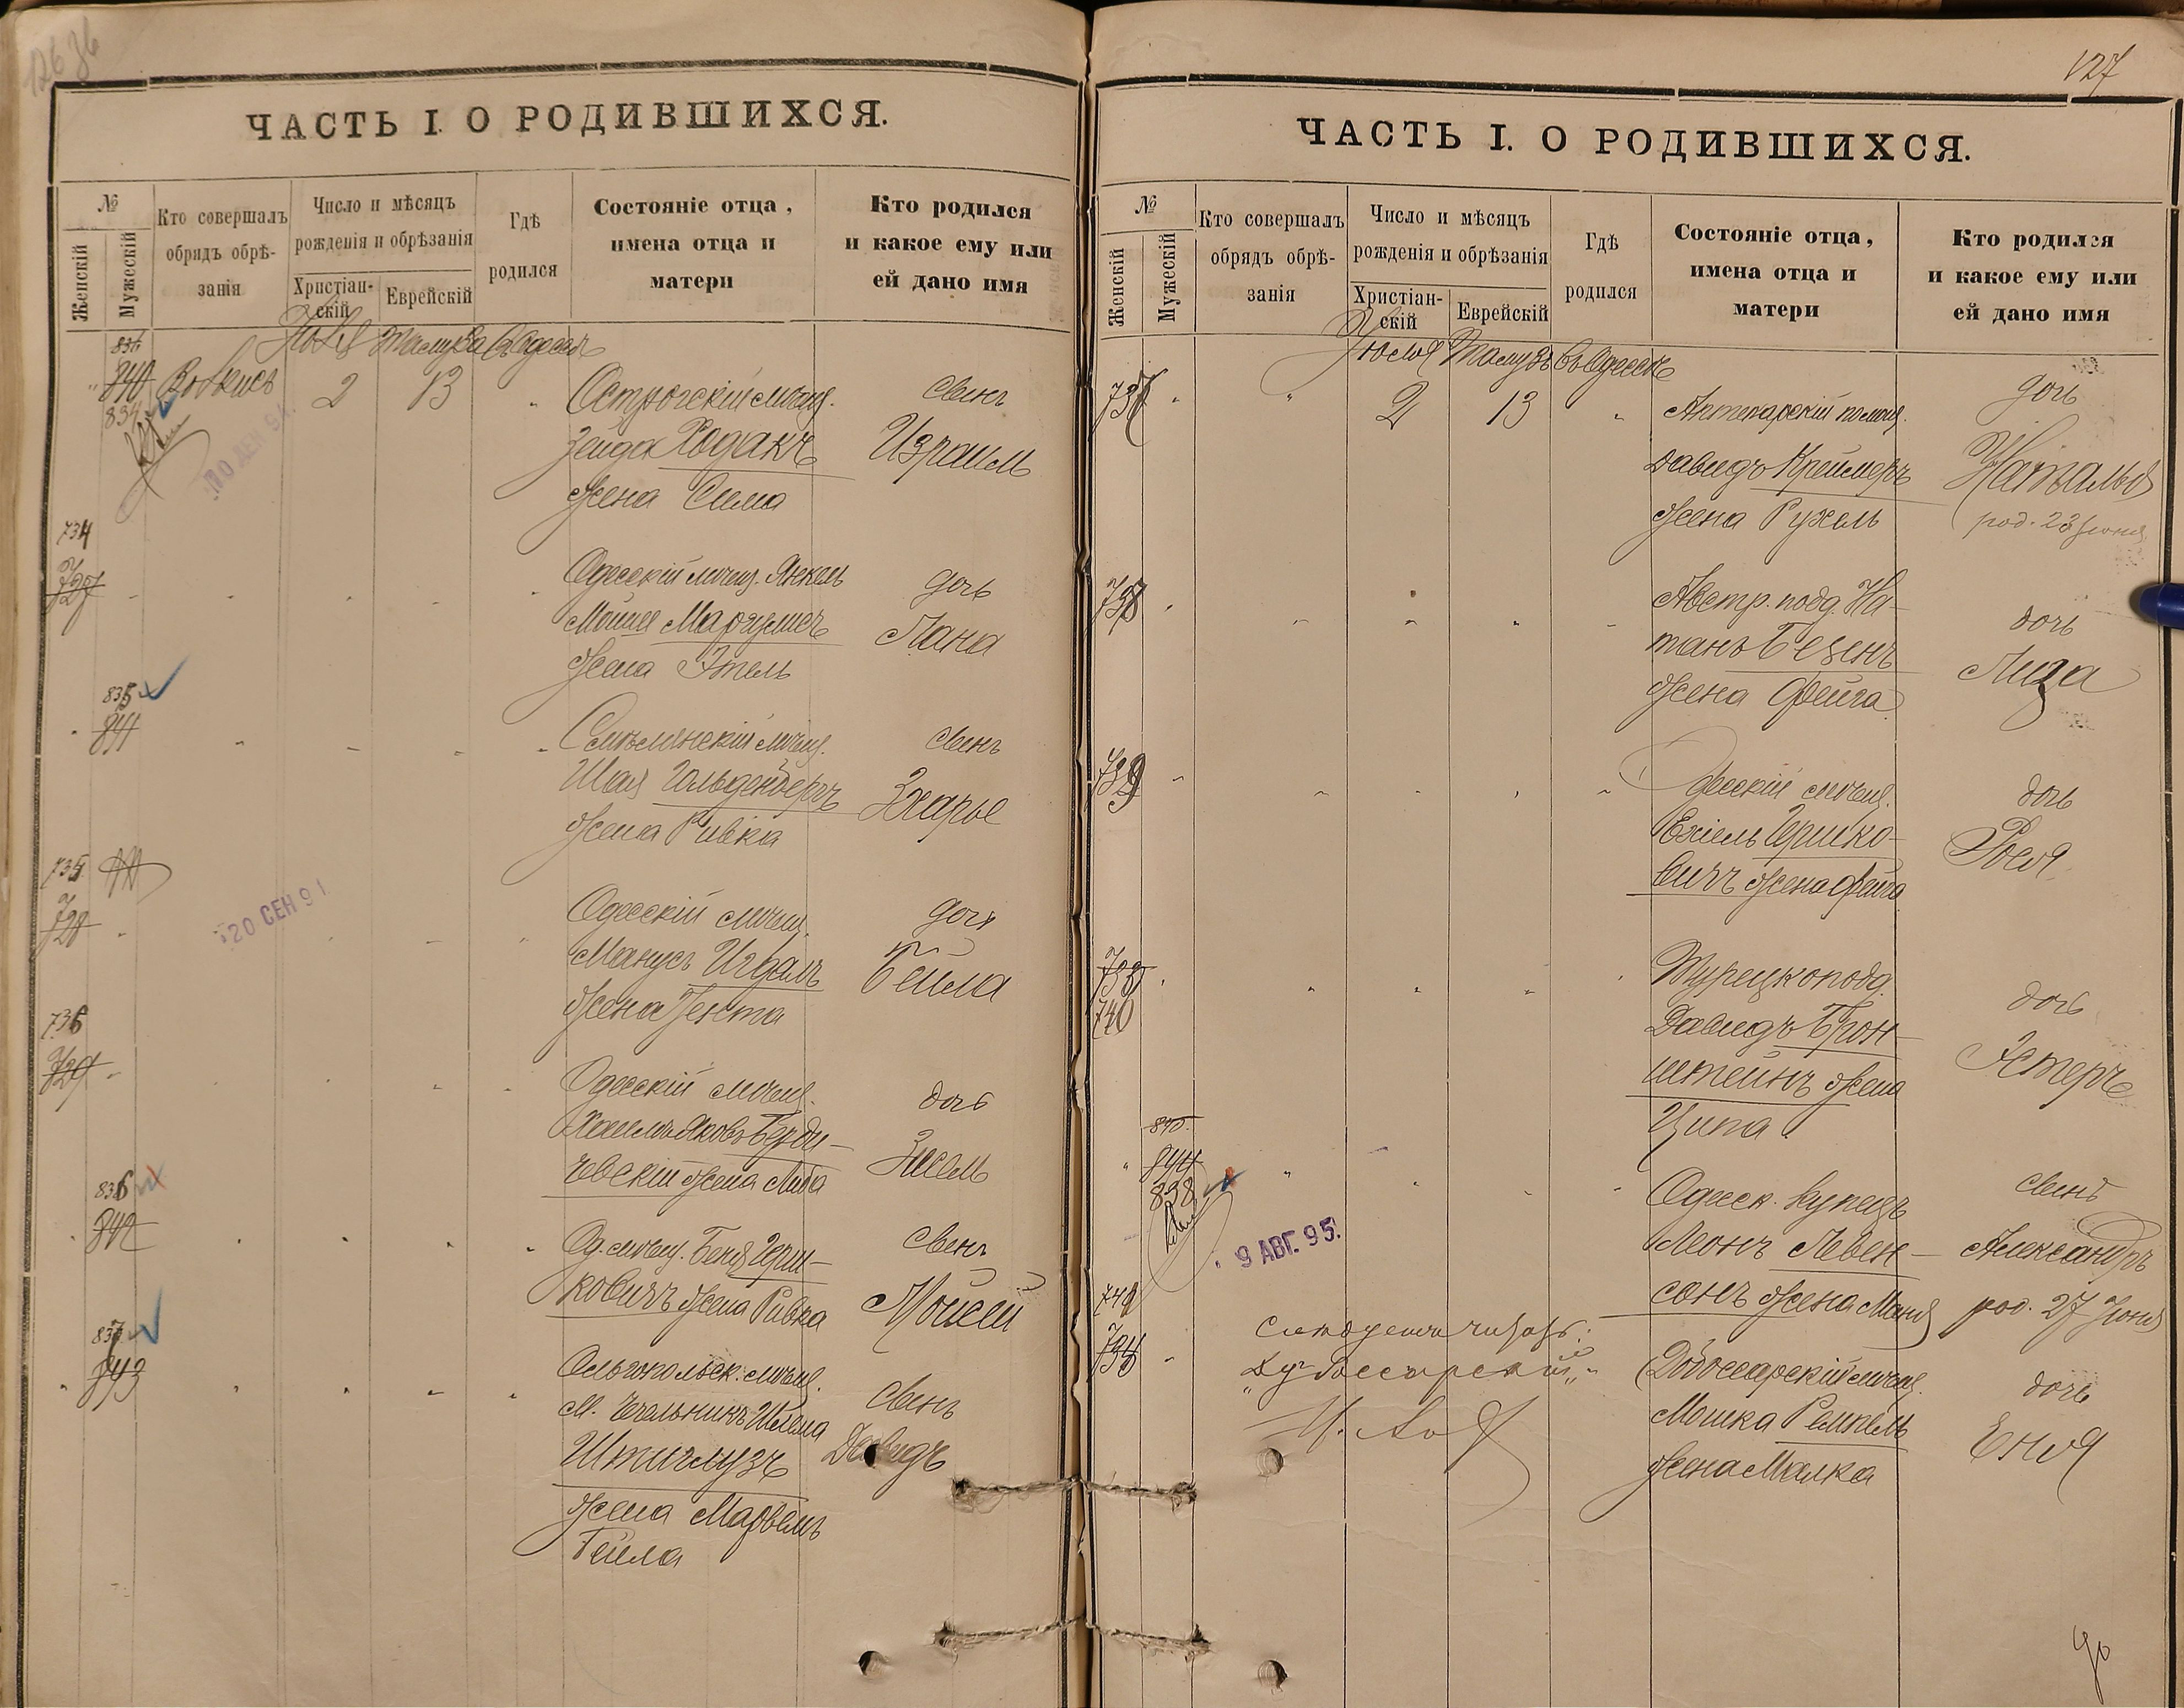 ЧАСТЬ I. О РОДИВШИХСЯ.
№
Женскій
Мужескій
Кто совершалъ
обрядъ обрѣ-
занія
Число и мѣсяцъ
рожденія и обрѣзанія
Христіан-
скій
Еврейскій
Гдѣ
родился
Состояніе отца,
имена отца и
матери
Кто родился
и какое ему или
ей дано имя
Іюля Тамуза въ Одессѣ
840
834
2
13
Острогскій мѣщ.
Зейда Ходакъ
жена Сима
сынъ
Израиль
734
727
Одесскій мѣщ. Янкель
Мошия Маргулисъ
жена Этель
дочь
Хана
835
841
Смѣлянскій мѣщ.
Шая Гольденбергъ
жена Ривка
сынъ
Зхарье
735
728
20 СЕН 91
Одесскій мѣщ.
Манусъ Игдалъ
жена Гента
дочь
Бейла
736
729
Одесскій мѣщ.
Хаимъ Яковъ Берди-
чевскій жена Люба
дочь
Зисель
836
842
Од. мѣщ. Беня Герш-
ковичъ жена Ривка
сынъ
Мойсей
837
843
Ольгопольск. мѣщ.
м. Чечельникъ Шлема
Штиглузъ
жена
Гейла
сынъ
Давидъ
127
ЧАСТЬ I. О РОДИВШИХСЯ.
№
Женскій
Мужескій
Кто совершалъ
обрядъ обрѣ-
занія
Число и мѣсяцъ
рожденія и обрѣзанія
Христіан-
скій
Еврейскій
Гдѣ
родился
Состояніе отца,
имена отца и
матери
Кто родился
и какое ему или
ей дано имя
Іюля Тамузъ въ Одессѣ
737
2
13
Аптекарскій помощ.
Давидъ Креймеръ
жена Рухель
дочь
Наталья
род. 23 Іюня
738
Австр. подд. На-
танъ Беценъ
жена Фейга
дочь
Лиза
739
Одесскій мѣщ.
Ехіель Гершко-
вичъ жена Фейга
дочь
Рося
740
Турецкоподд.
ДавидъБрон-
штейнъ жена
Ципа
дочь
Эстеръ
844
838
9 АВГ. 95.
Одесск. купецъ
Леонъ Левен-
сонъ жена Маня
сынъ
Александръ
род. 27 Іюня
741
Слѣдуетъ читать:
"Дубоссарскій"
Дубоссарскій мѣщ.
Мошка Ремпель
жена Малка
дочь
Еня